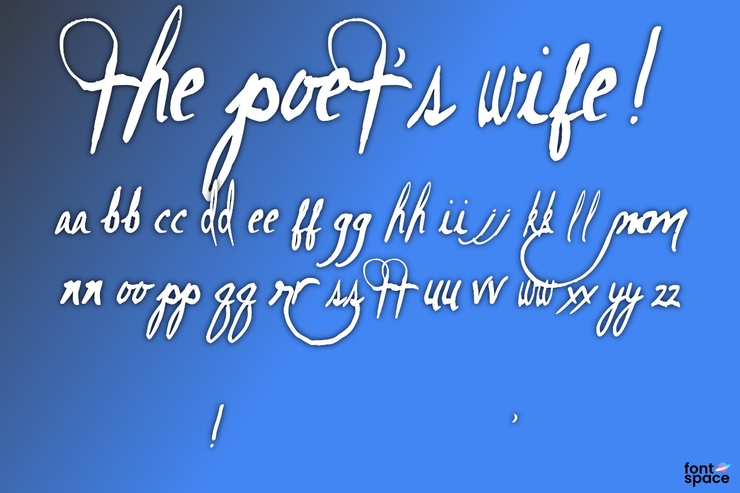 the poet's wife!
aa bb cc dd ee ff gg hh ii jj kk ll mm
nn oo pp qq rr ss tt uu vv ww xx yy zz
! ’
font
space